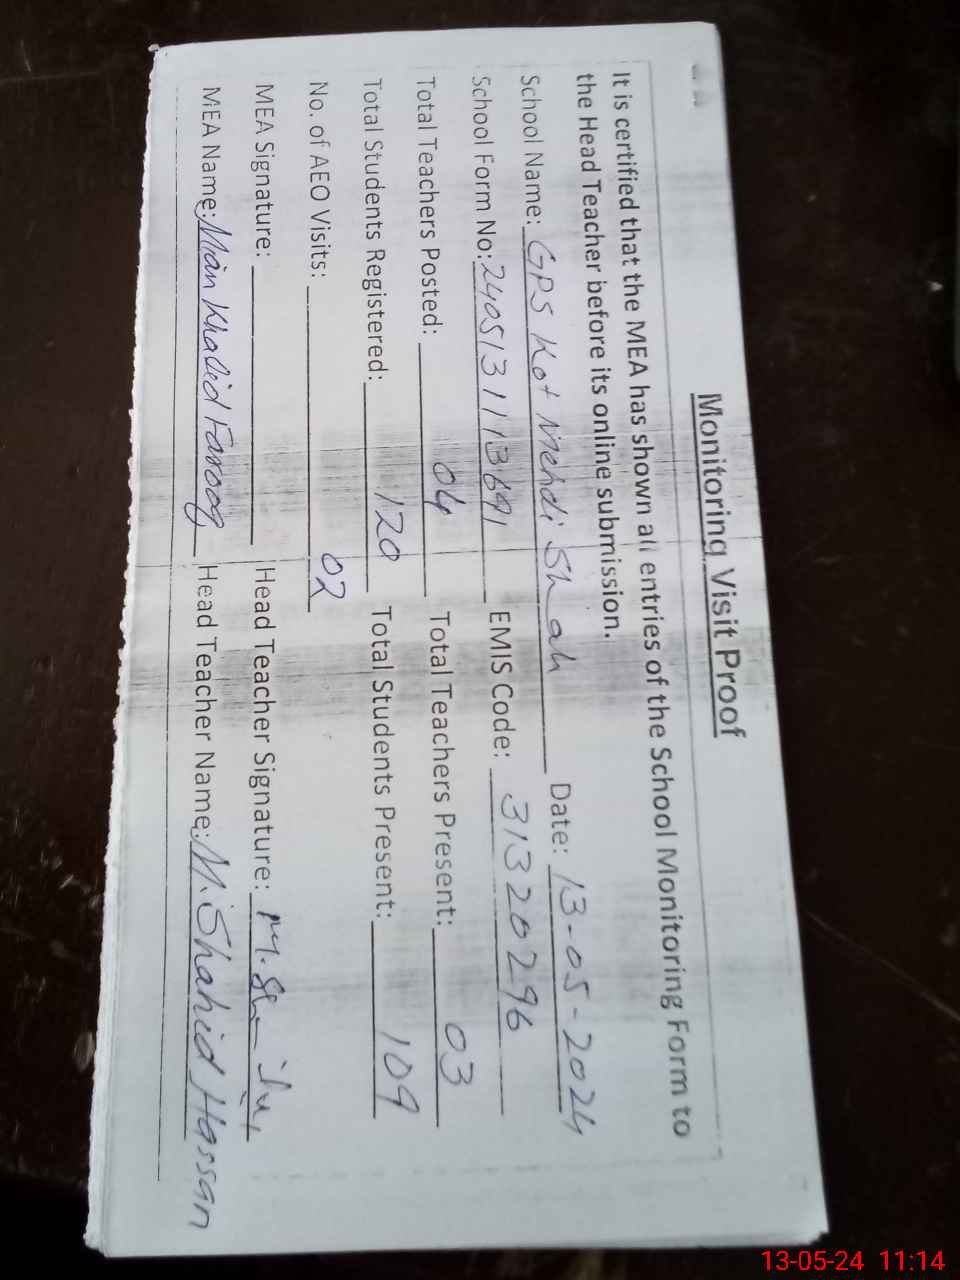 Monitoring Visit Proof
It is certified that the MEA has shown all entries of the School Monitoring Form to
the Head Teacher before its online submission.
School Name: GPS Kot Mehdi Shah Date: 13-05-2024
School Form No: 2405131113691 EMIS Code: 31320296
Total Teachers Posted: 04 Total Teachers Present: 03
Total Students Registered: 120 Total Students Present: 109
No. of AEO Visits: 02
MEA Signature: Head Teacher Signature:
MEA Name: Mian Khalid Farooq Head Teacher Name: M. Shahid Hassan
13-05-24 11:14